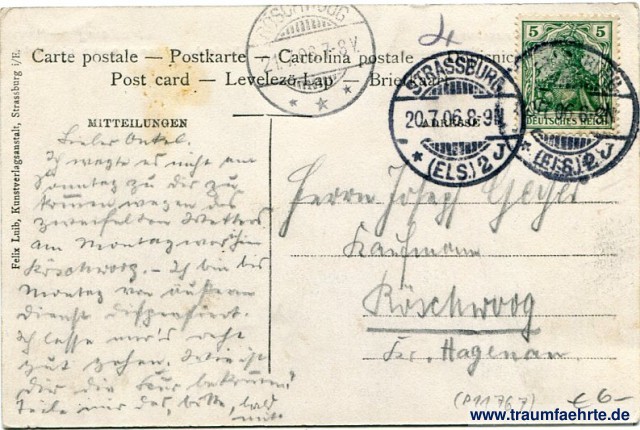 Carte postale — Postkarte — Cartolina postale
Post card — Levelező-Lap — Brief
RÖSCHWOOG
STRASSBURG
20.7.06.8-9V
* (ELS.) 2 J
5 5
DEUTSCHES REICH
(ELS.) 2 J
MITTEILUNGEN
ADRESSE
Felix Luib, Kunstverlagsanstalt, Strassburg i/E.
Lieber Onkel.
Ich wagte es nicht am
Sonntag zu dir zu
kommen wegen des
zweifelten Wetters
am Montag war ich in
Röschwoog. — Ich bin bis
Montag von äußerem
Dienst dispensiert.
Ich lasse mir's recht
gut gehen. Wie ist
dir die Tour bekommen?
Teile mir das, bitte, bald
mit
Herrn Joseph
Kaufmann
Röschwoog
Kr. Hagenau
(P11767)
€ 6-
www.traumfaehrte.de